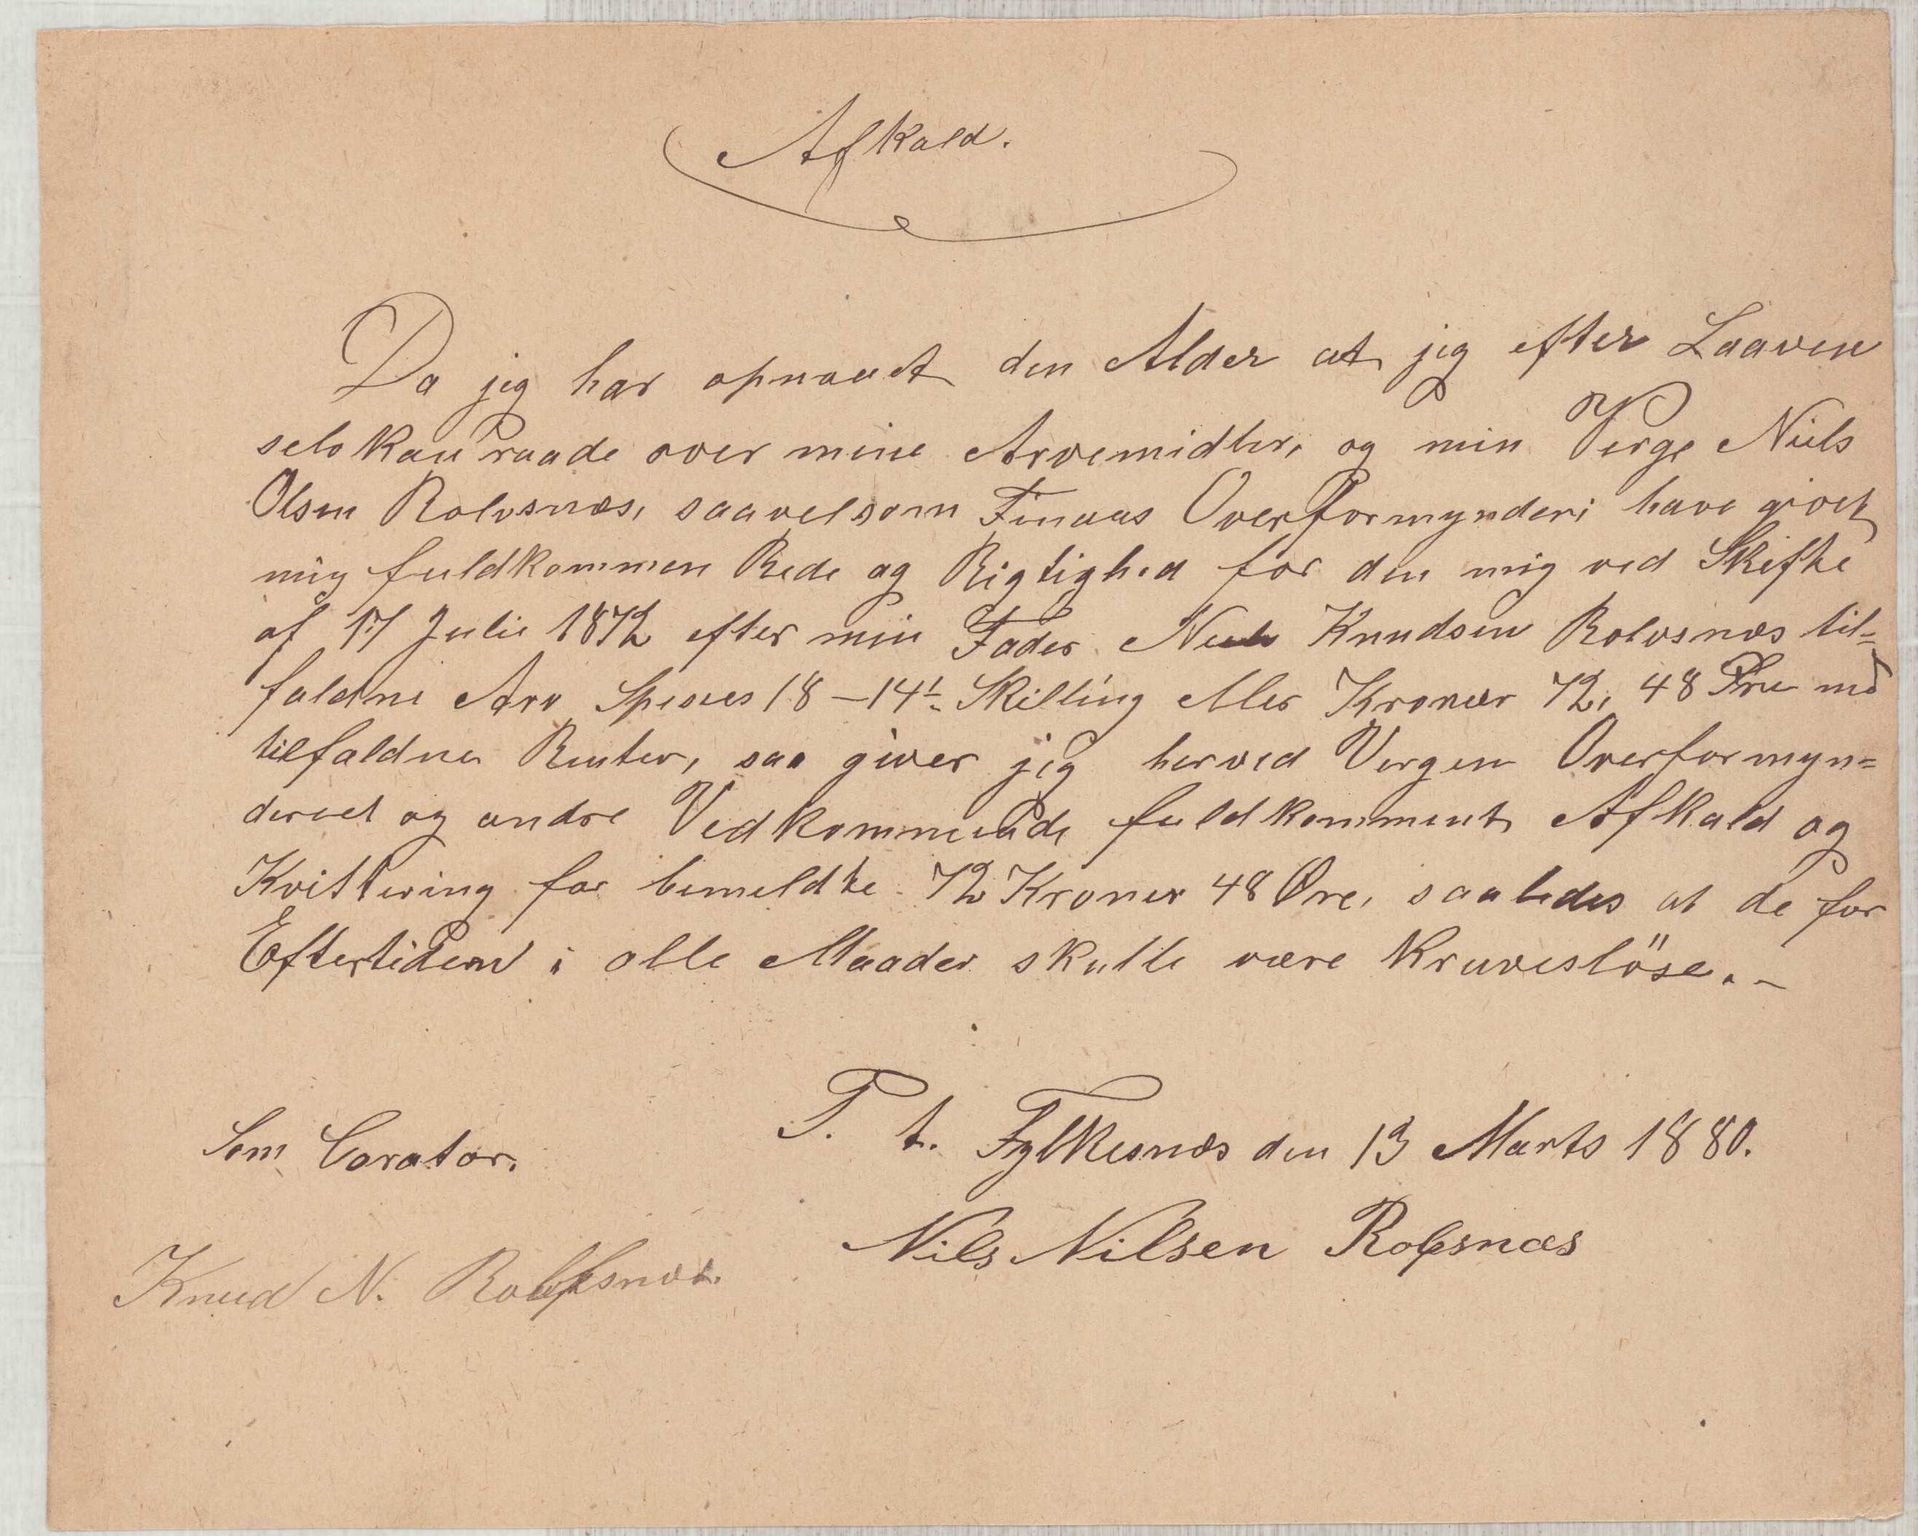 Afkald.
Da jeg har opnaaet den Alder at jeg efter Laaven
selv kan raade over mine Arvemidler, og min Verge Niels
Olsen Rolvsnæs, saavelsom Finaas Overformynderi have gjort
mig fuldkommen Rede og Rigtighed for den mig ved Skifte
af 17 Julie 1872 efter min Fader Niels Knudsen Rolvsnæs til=
faldne Arv Spesies 18 – 14½ Skilling eller Kroner 72, 48 Øre med
tilfaldne Renter, saa giver jeg herved Vergen Overformyn=
deriet og andre Vedkommende fuldkomment Afkald og
Kvittering for bemeldte 72 Kroner 48 Øre, saaledes at de for
Eftertiden i alle Maader skulle være Kravesløse. –
T. t. Fylkesnæs den 13 Marts 1880.
Som Corator.
Nils Nilsen Rolfsnæs
Knud N. Rolfsnæs.